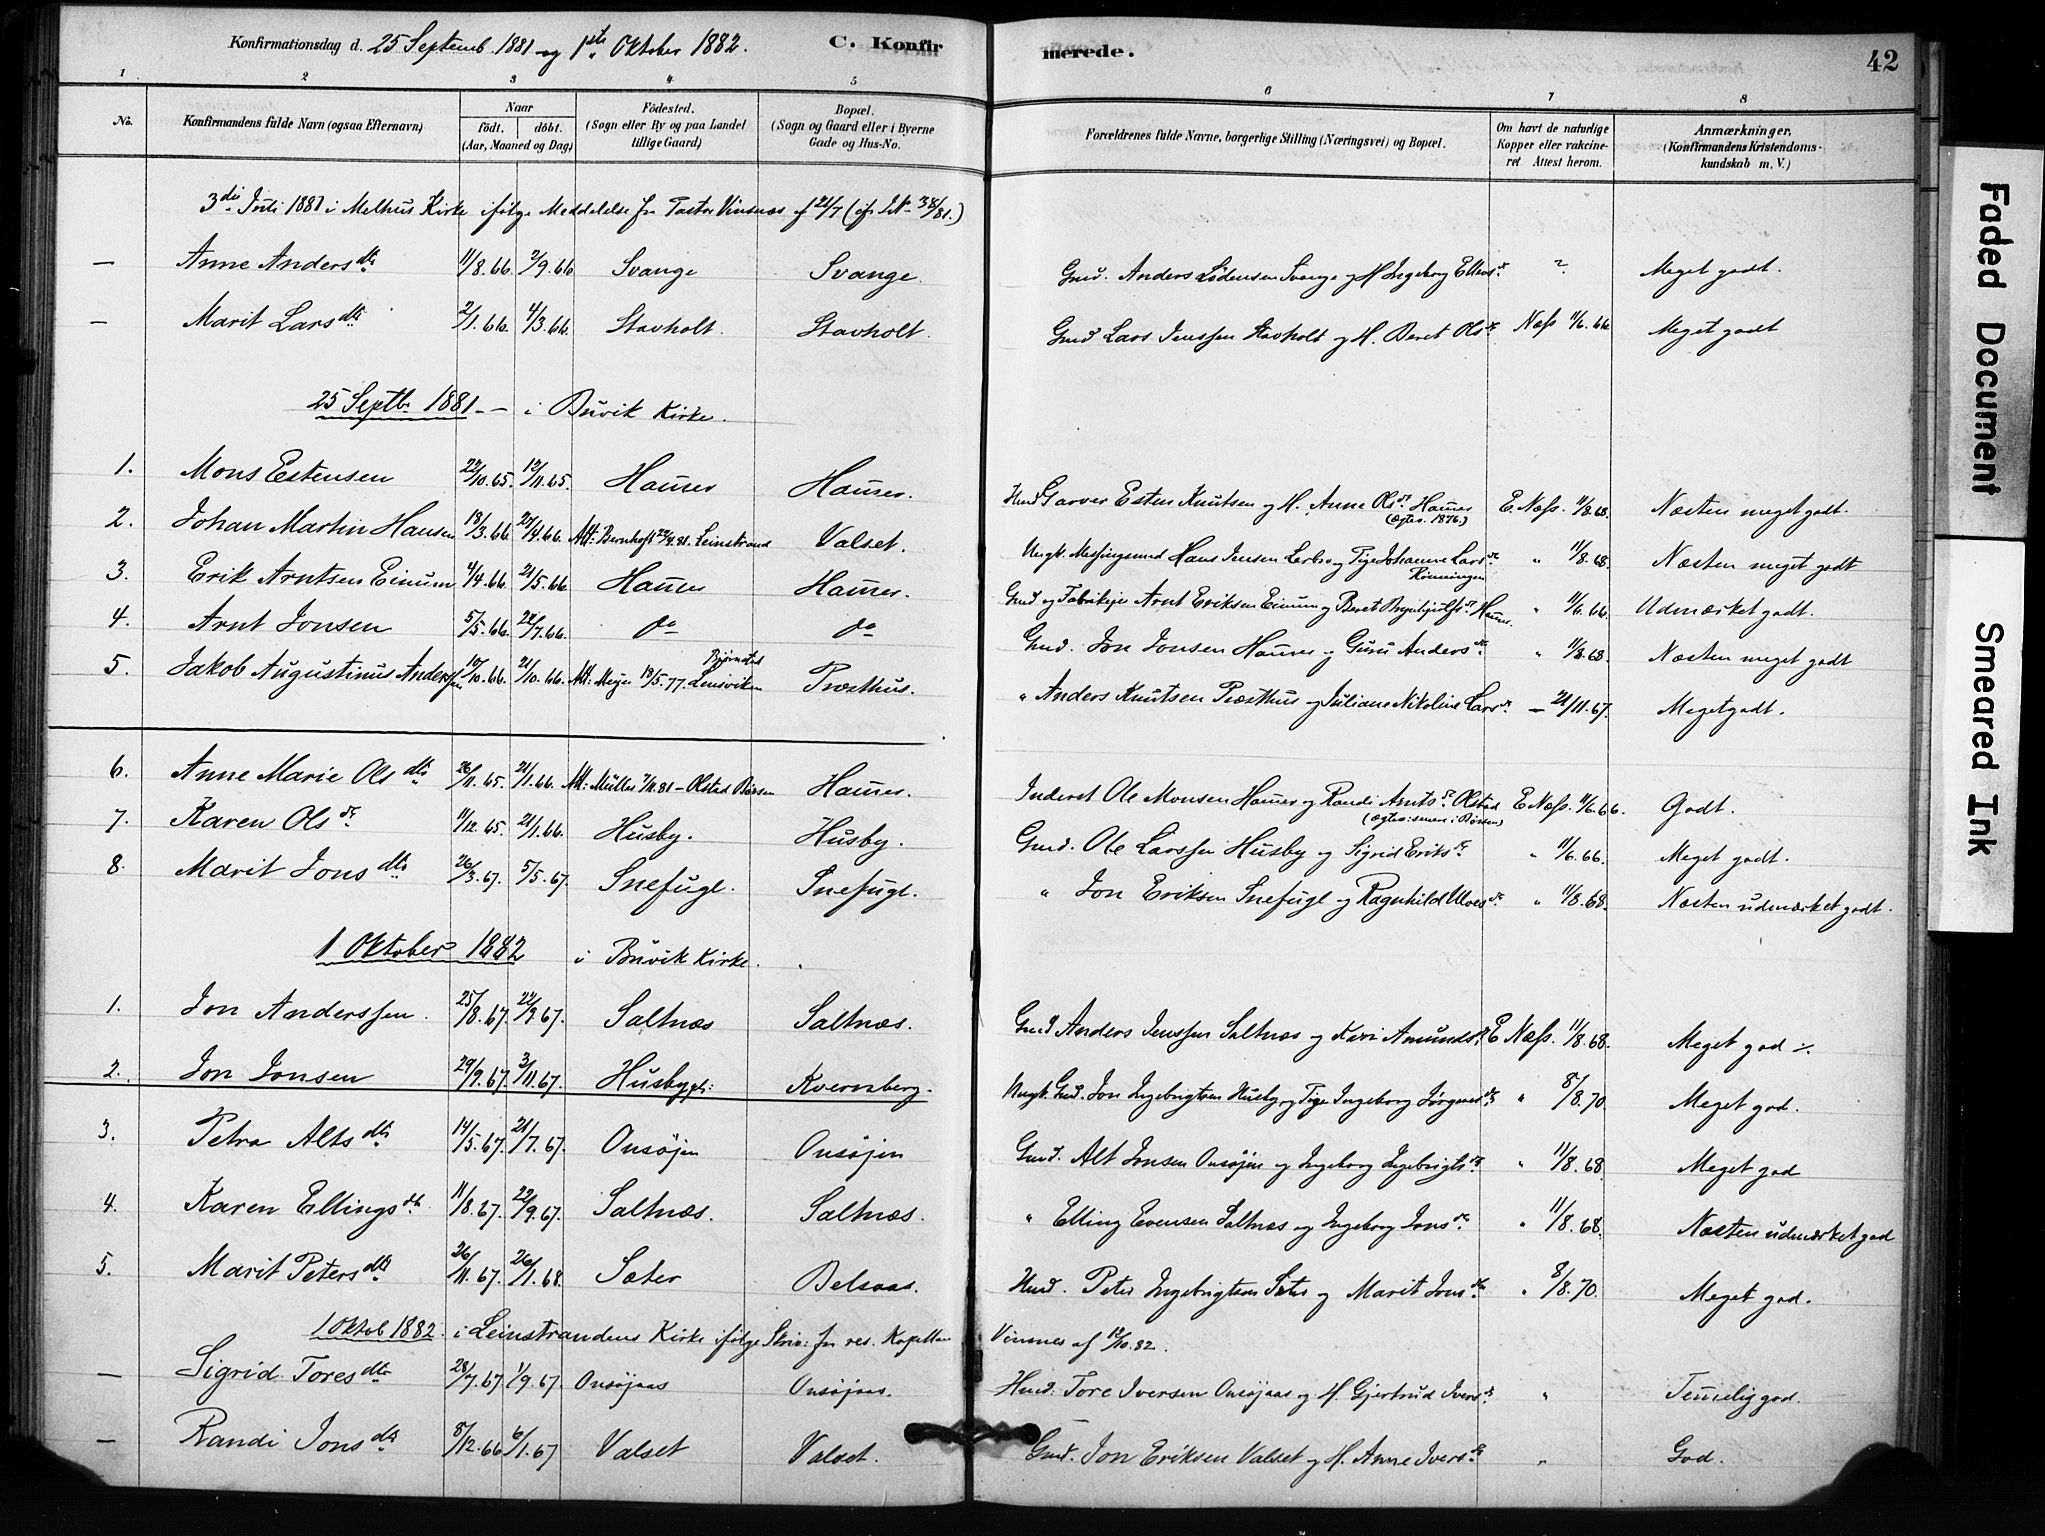 Konfirmationsdag d. 25 Septemb. 1881 og 1ste Oktober 1882. C. Konfirmerede. 42
1 2 3 4 5 6 7 8
No. Konfirmandens fulde Navn (ogsaa Efternavn) Naar født. døbt. (Aar, Maaned og Dag) Fødested. (Sogn eller By og paa Landet tillige Gaard) Bopæl. (Sogn og Gaard eller i Byerne Gade og Hus-No. Forældrenes fulde Navne, borgerlige Stilling (Næringsvei) og Bopæl. Om havt de naturlige Kopper eller vakcineret. Attest herom. Anmærkninger. (Konfirmandens Kristendomskundskab m. V.)
3die Juli 1881 i Melhus Kirke ifølge Meddelelse fra Pastor Vinsnes af 21/7
— Anne Andersdtr 11/8.66. 2/9.66 Svange Svange. Gmd. Anders Svange og H. Ingeborg Ellens Meget godt.
— Marit Larsdtr 2/1.66. 4/3.66. Stavholt. Stavholt. Gmd Lars Jenssen Stavholt og H. Beret Olsdr Næss 11/6.66. Meget godt
25 Septbr 1881. — i Buvik Kirke.
1. Mons Estensen 22/10.65. 12/11.65. Hammer Hammer. Garver Esten Knutsen og H. Anne Olsdr Hammer (Ægtev. 1876.) E. Næss. 11/8.68. Næsten meget godt.
2. Johan Martin Hansen 18/3.66. 22/4.66. Att: Bernhoft 22/9.81. Leinstrand Valset. Ungk. Hans Jensen og Pige Johanne Larsdr Rønningen " 11/8.68. Næsten meget godt
3. Erik Arntsen Einum 4/4.66. 21/5.66. Hammer Hammer. Gmd og Arnt Eriksen Einum og Beret Hammer. " 11/6.66. Udmærket godt.
4. Arnt Jonsen 5/5.66. 22/7.66. do do Gmd. Jon Jonsen Hammer og Guru Andersdr " 11/8.68. Næsten meget godt
5. Jakob Augustinus Anderssen 10/10.66. 21/10.66. Att: Meyer 19/5.77. Bjørnstad Lensviken Præsthus. " Anders Knutsen Præsthus og Juliane Nikoline Larsdr — 21/11.67. Meget godt.
6. Anne Marie Olsdtr 26/11.65. 21/1.66. Att: Müller 7/11.81 – Olstad Børsen Hammer. Inderst Ole Monsen Hammer og Randi Arntsdr Olstad E Næss. 11/6.66. Godt.
7. Karen Olsdr 11/12.65. 21/1.66. Husby. Husby. Gmd. Ole Larssen Husby og Sigrid Eriksdr " 11/6.66. Meget godt.
8. Marit Jonsdtr 26/3.67. 5/5.67. Snefugl. Snefugl. " Jon Eriksen Snefugl og Ragnhild " 11/8.68. Næsten udmærket godt.
1 Oktober 1882 i Buvik Kirke.
1. Jon Anderssen. 25/8.67. 22/9.67. Saltnæs Saltnæs. Gmd Anders Jenssen Saltnæs og Kari Amundsdr E Næss. 11/8.68. Meget god
2. Jon Jonsen 29/9.67. 3/11.67. Husbypl: Kvernberg. Ungk. Gmd. Jon Ingebrigtsen Husby og Pige Ingeborg Jørgensdr " 8/8.70. Meget god.
3. Petra Altsdtr 14/5.67. 21/7.67. Onsøjen Onsøjen Gmd. Alt Jonsen Onsøjen og Ingeborg Ingebrigtsdr " 11/8.68. Meget god
4. Karen Ellingsdtr 11/8.67. 22/9.67. Saltnæs. Saltnæs. " Elling Evensen Saltnæs og Ingeborg Jonsdr " 11/8.68. Næsten udmærket god
5. Marit Petersdtr 26/11.67. 26/1.68. Sæter Belsaas. Hmd. Peter Ingebrigtsen Sæter og Marit Jonsdtr " 8/8.70. Meget god.
1 Oktob 1882. i Leinstrandens Kirke ifølge Skriv: fra res. Kapellan Vinsnes af 12/10.82.
— Sigrid Toresdtr 28/7.67. 1/9.67. Onsøjaas Onsøjaas. Hmd. Tore Iversen Onsøjaas og H. Gjertrud Iversdr " Temmelig god.
— Randi Jonsdtr 8/12.66 6/1.67 Valset Valset. Gmd. Jon Eriksen Valset og H. Anne Iversdr " God.
Faded Document
Smeared Ink